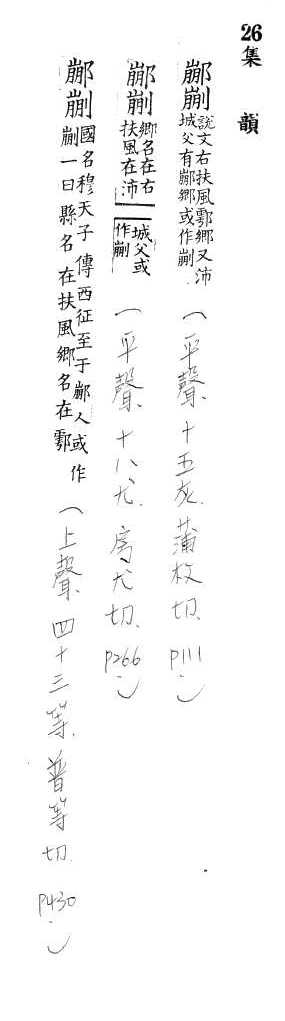 26集 韻
䣙𨛍說文右扶風鄠鄉又沛城父有䣙鄉或作𨛍(平聲、十五灰、蒲枚切、P111)
䣙𨛍鄉名在右扶風在沛城父或作𨛍(平聲、十八尤、房尤切、P266)
䣙𨛍國名穆天子傳西征至于䣙人或作𨛍一曰縣名在扶風鄉名在鄠(上聲、四十三等、普等切、P430)